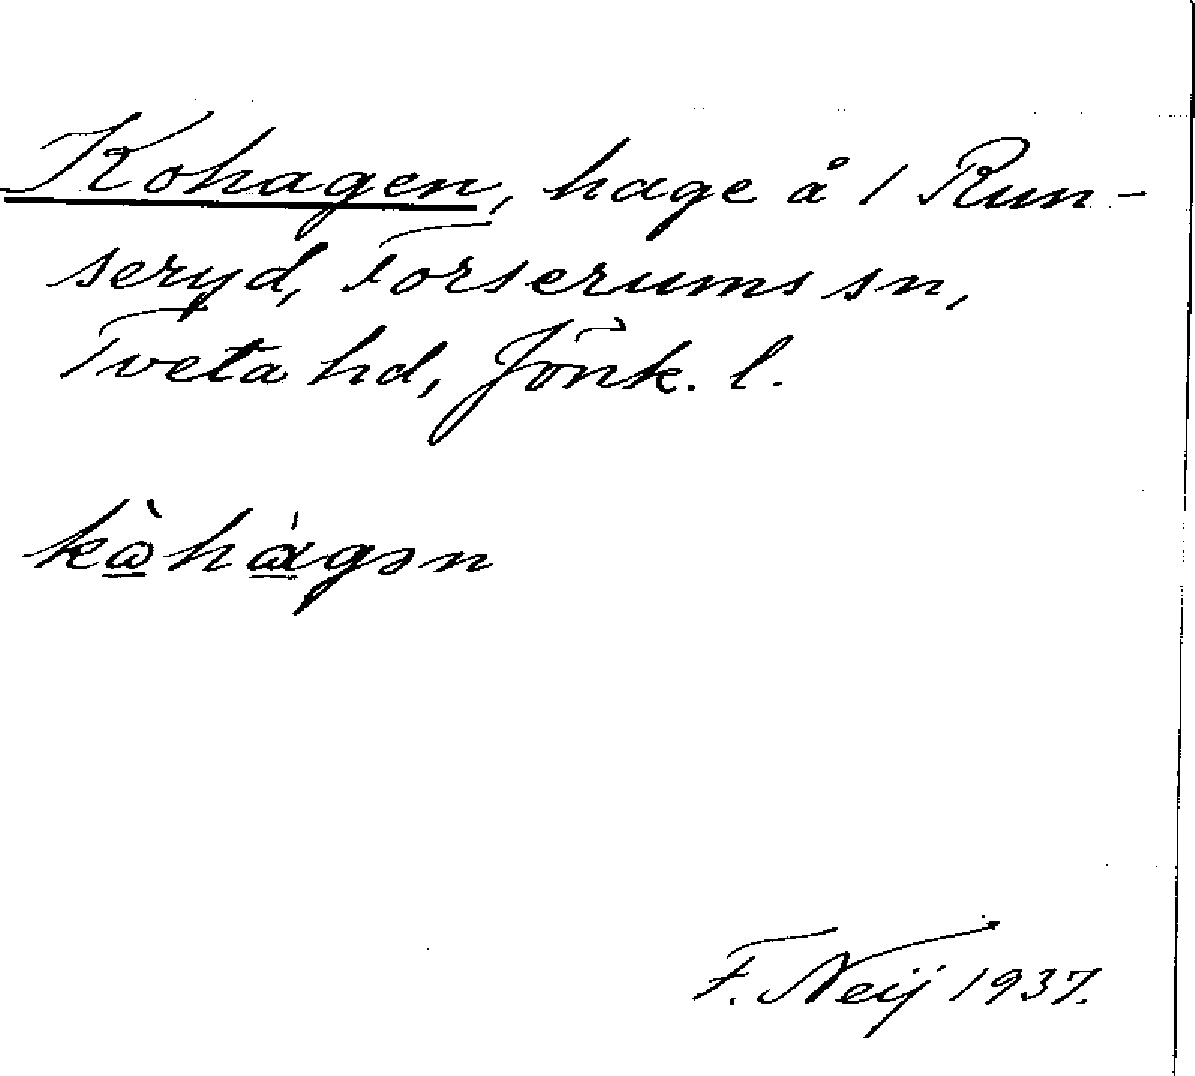 Kohagen, hage å 1 Run-
seryd, Forserums sn,
Tveta hd, Jönk. l.
kὼ̲hὰ̲gən
F. Neij 1937.